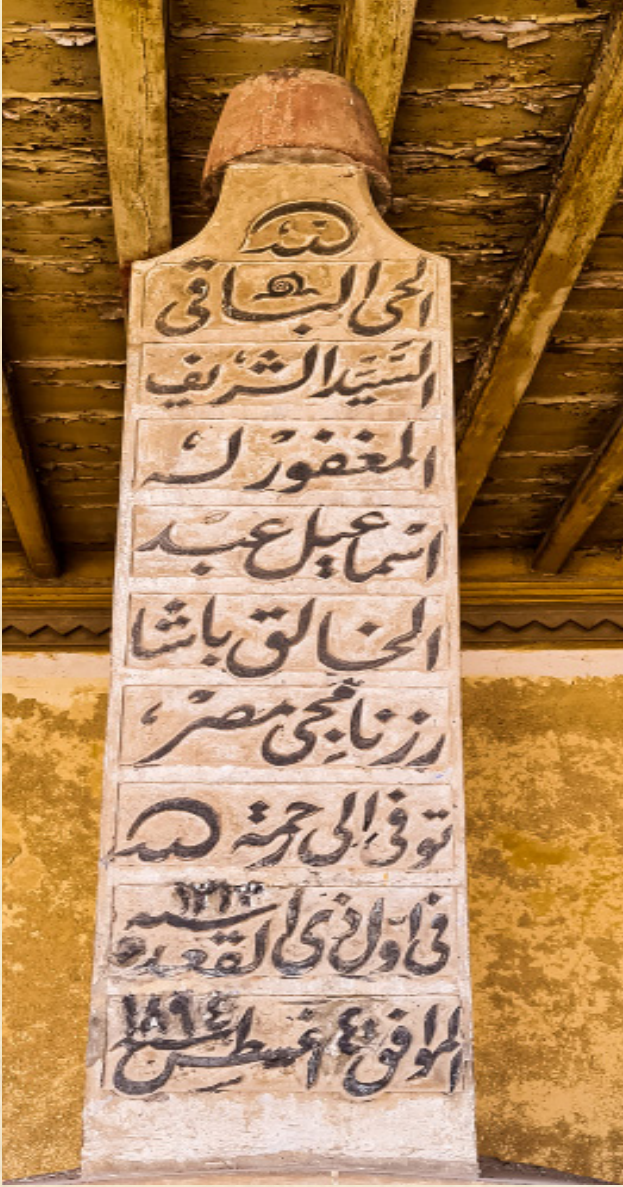 الله
الحى الباقى
السَّيِّد الشريف
المغفور له
اسماعيل عبد
الخالق باشا
رزنامجى مصر
توفى إلى رحمة الله
فى اول ذى القعده سنه
الموافق اغسطس سنه ١٨٩٤